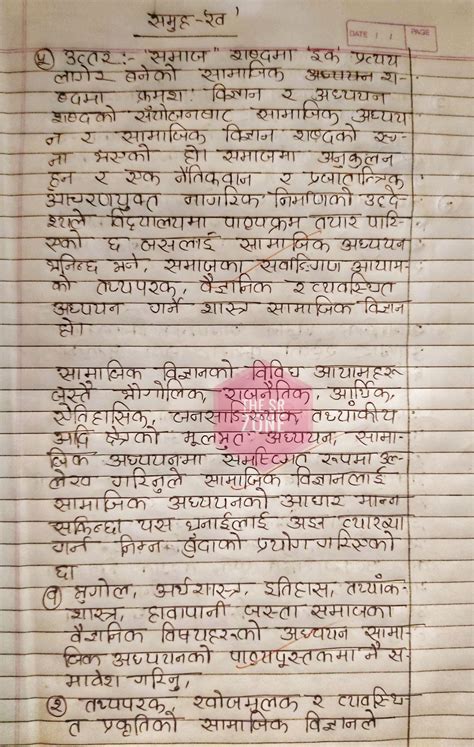 समुह-'ख'
DATE PAGE
५ उत्तर :- 'समाज" शब्दमा 'इक' प्रत्यय
लागेर बनेको सामाजिक अध्ययन श-
ब्दमा क्रमश विज्ञान र अध्ययन
शब्दको संयोजनबाट सामाजिक अध्यय
न र सामाजिक विज्ञान शब्दको रच-
ना भएको हो। समाजमा अनुकुलन
हुन र एक नैतिकवान र प्रजातान्त्रिक
आचरणयुक्त नागरिक निर्माणको उद्दे-
श्यले विद्यालयमा पाठ्यक्रम तयार पारि-
एको छ जसलाई सामाजिक अध्ययन
भनिन्छ भने, समाजका सर्वाङ्गिण आयाम-
को तथ्यपरक, वैज्ञानिक र व्यवस्थित
अध्ययन गर्ने शास्त्र सामाजिक विज्ञान
हो।
सामाजिक विज्ञानको विविध आयामहरू
जस्तै भौगोलिक, राजनैतिक, आर्थिक,
ऐतिहासिक, जनसाङ्ख्यिक तथ्यांकीय
आदि क्षेत्रको मूलभूत अध्ययन, सामा-
जिक अध्ययनमा समष्टिगत रूपमा उल्-
लेख गरिनुले सामाजिक विज्ञानलाई
सामाजिक अध्ययनको आधार मान्न
सकिन्छ। यस भनाईलाई अझ व्याख्या
गर्न निम्न बुंदाको प्रयोग गरिएको
छ।
१ भुगोल, अर्थशास्त्र, इतिहास, तथ्यांक-
शास्त्र, हावापानी जस्ता समाजका
वैज्ञानिक विषयहरुको अध्ययन सामा-
जिक अध्ययनको पाठ्यपुस्तकमा नै स-
मावेश गरिनु,
२ तथ्यपरक, खोजमूलक र व्यवस्थि-
त प्रकृतिको सामाजिक विज्ञानले
THE SR
ZONE